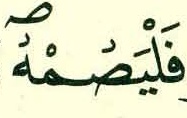 فَلْيَصُمْهُۖ